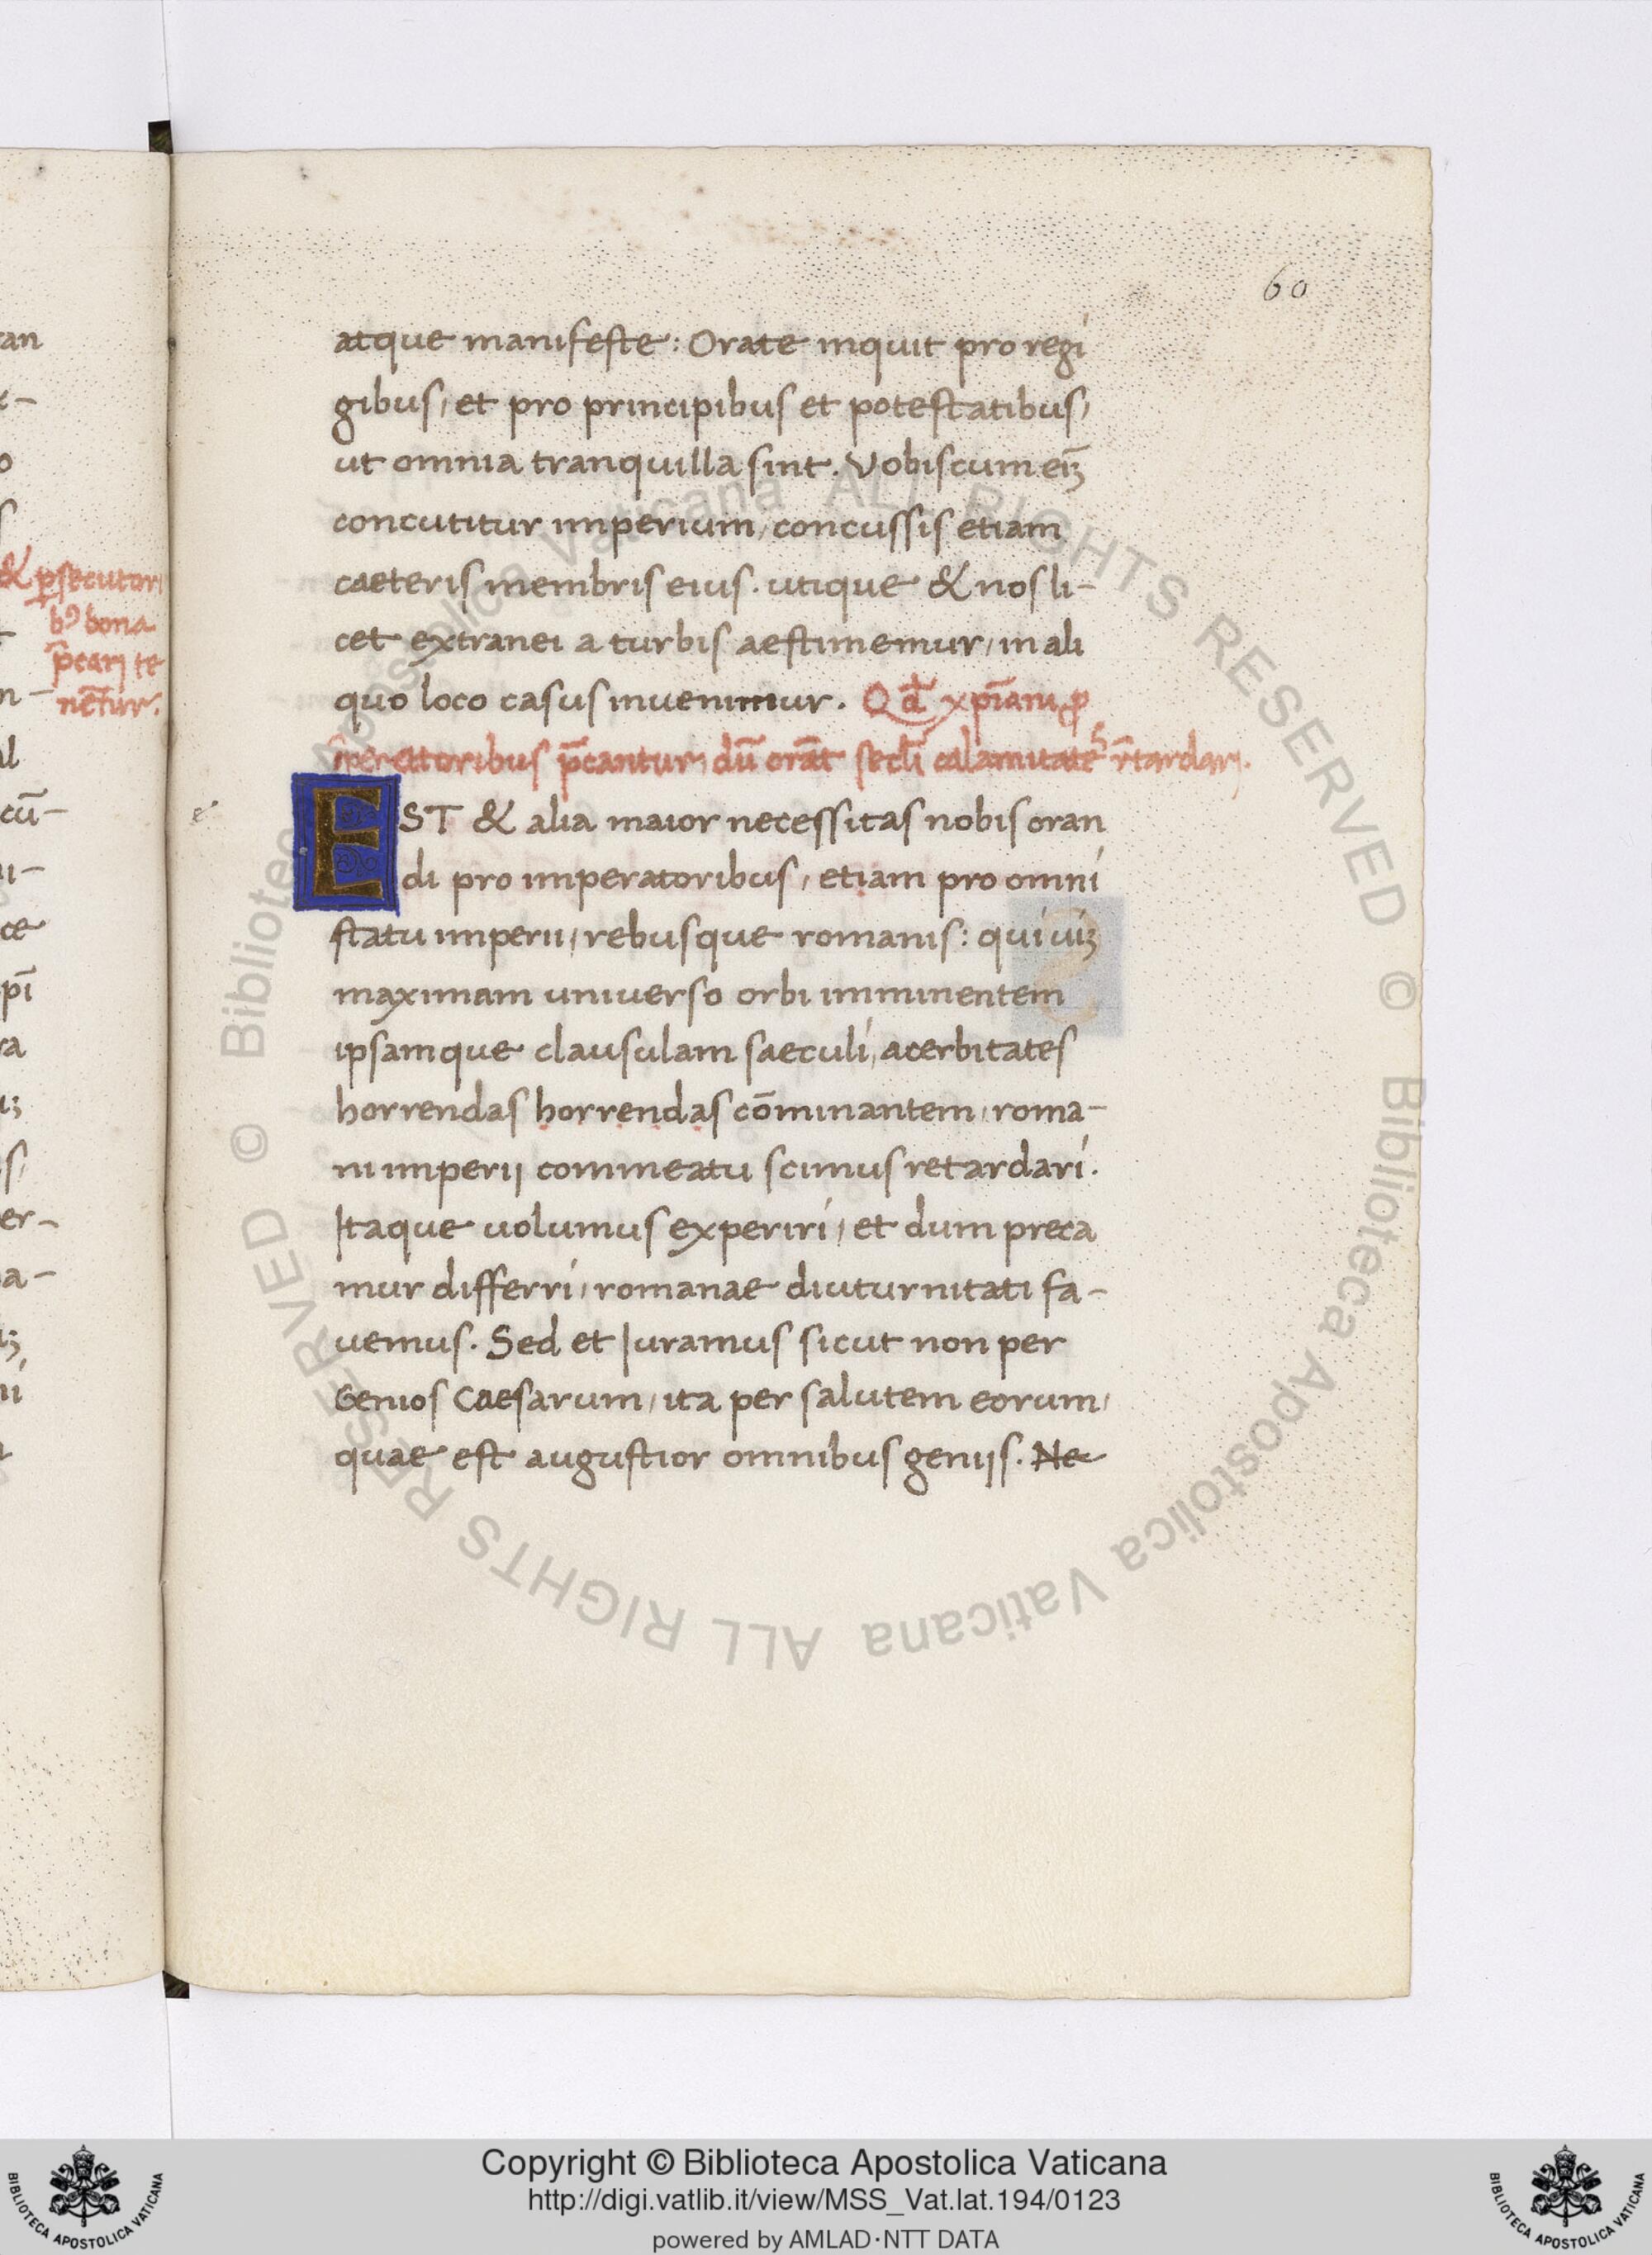 60
an
o
& p̱secutori
bꝰ bona
p̄carị te
nēt̄ur.
cū-
ce
pī
er-
a-
atque manifeste: Orate inquit pro regi
gibus, et pro principibus et potestatibus,
ut omnia tranquilla sint. Vobiscum eīꝫ
concutitur imperium, concussis etiam
caeteris membris eius. utique & nos li-
cet extranei a turbis aestimemur, in ali
quo loco casus inuenimur. Qđ xp̄iani ꝓ
īperatoribus p̄cantur, dū orāt secl̄i calamitatē r̄tardarj.
EST & alia maior necessitas nobis oran
di pro imperatoribus, etiam pro omni
statu imperii, rebusque romanis: qui uiꝫ
maximam universo orbi imminentem
ipsamque clausulam saeculi, acerbitates
horrendas horrendas cōminantem, roma-
ni imperij commeatu scimus retardari.
Itaque uolumus experiri, et dum preca
mur differri, romanae diuturnitati fa-
uemus. Sed et Iuramus sicut non per
Genios Caesarum, ita per salutem eorum,
quae est augustior omnibus genijs. Ne
© Biblioteca Apostolica Vaticana ALL RIGHTS RESERVED © Biblioteca Apostolica Vaticana ALL RIGHTS RESERVED
Copyright © Biblioteca Apostolica Vaticana
http://digi.vatlib.it/view/MSS_Vat.lat.194/0123
powered by AMLAD·NTT DATA
BIBLIOTECA APOSTOLICA VATICANA
BIBLIOTECA APOSTOLICA VATICANA